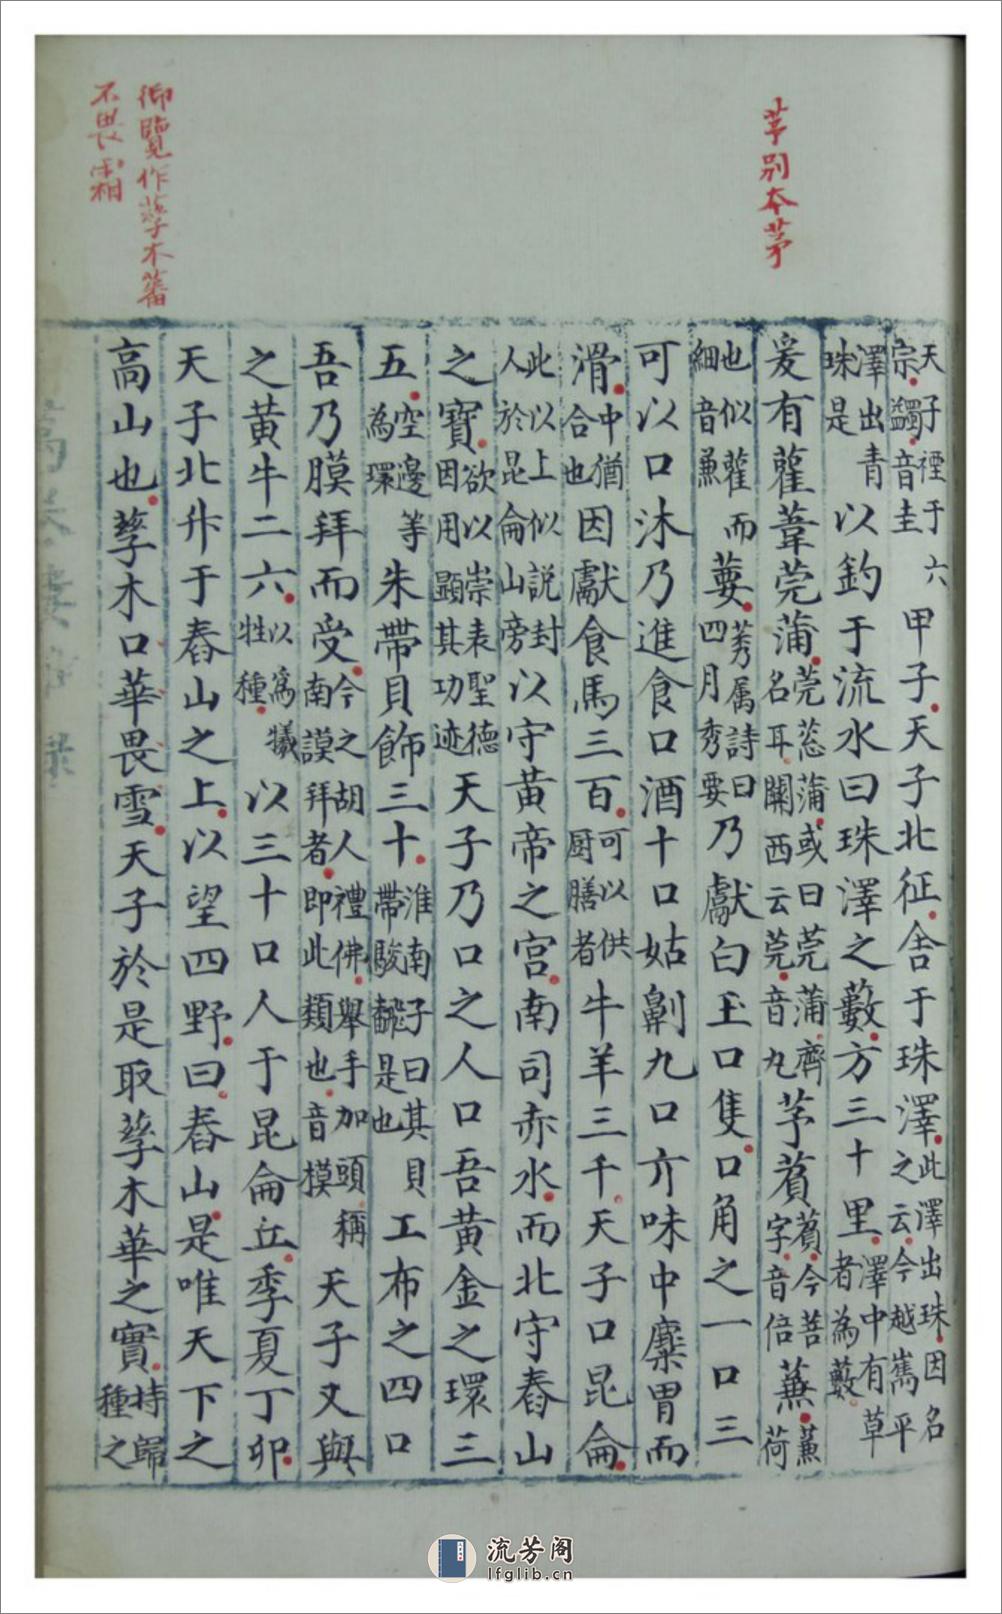 茅別本茅
御覽作孳木蕃
不畏霜
天子禋于六
宗蠲音圭
甲子天子北征舍于珠澤
此澤出珠因名
之云今越嶲平
澤出青
珠是
以釣于流水曰珠澤之藪方三十里
澤中有草
者為藪
爰有雚葦莞蒲
莞葱蒲或曰莞蒲齊
名耳關西云莞音丸
芧萯
萯今菩
字音倍
蒹
蒹荷
也似雚而
細音兼
葽
莠属詩曰
四月秀要
乃獻白玉口隻口角之一口三
可以口沐乃進食口酒十口姑劓九口亣味中糜胃而
滑
中猶
合也
因獻食馬三百
可以供
厨膳者
牛羊三千天子口昆侖
此以上似説封
人於昆侖山旁
以守黃帝之宫南司赤水而北守舂山
之寶
欲以崇表聖德
因用顯其功迹
天子乃口之人口吾黃金之環三
五
空邊等
為環
朱帶貝飾三十
淮南子曰其貝
帶駿䴊是也
工布之四口
吾乃膜拜而受
今之胡人禮佛舉手加頭稱
南謨拜者即此類也音模
天子又與
之黃牛二六
以為犧
牲種
以三十口人于昆侖丘季夏丁卯
天子北升于舂山之上以望四野曰舂山是唯天下之
高山也孳木口華畏雪天子於是取孳木華之實
持歸
種之
流芳阁
lfglib.cn